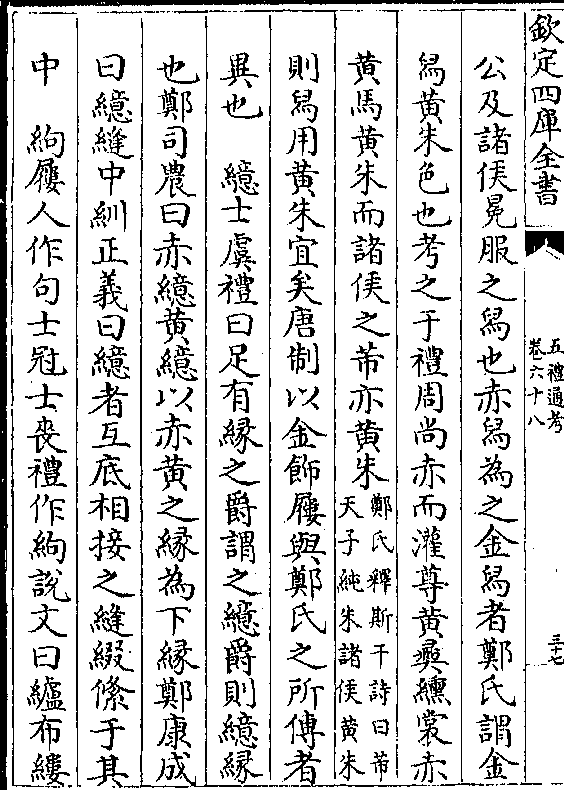 欽定四庫全書
五禮通考
卷六十八
三十七
公及諸侯冕服之舄也赤舄為之金舄者鄭氏謂金
舄黄朱色也考之于禮周尚赤而灌尊黄彞纁裳赤
黄馬黄朱而諸侯之芾亦黄朱
鄭氏釋斯干詩曰芾
天子純朱諸侯黄朱
則舄用黄朱宜矣唐制以金飾屨與鄭氏之所傳者
異也　繶士虞禮曰足有緣之爵謂之繶爵則繶緣
也鄭司農曰赤繶黄繶以赤黄之緣為下緣鄭康成
曰繶縫中紃正義曰繶者互底相接之縫綴絛于其
中　絇屨人作句士冠士喪禮作絇說文曰纑布縷